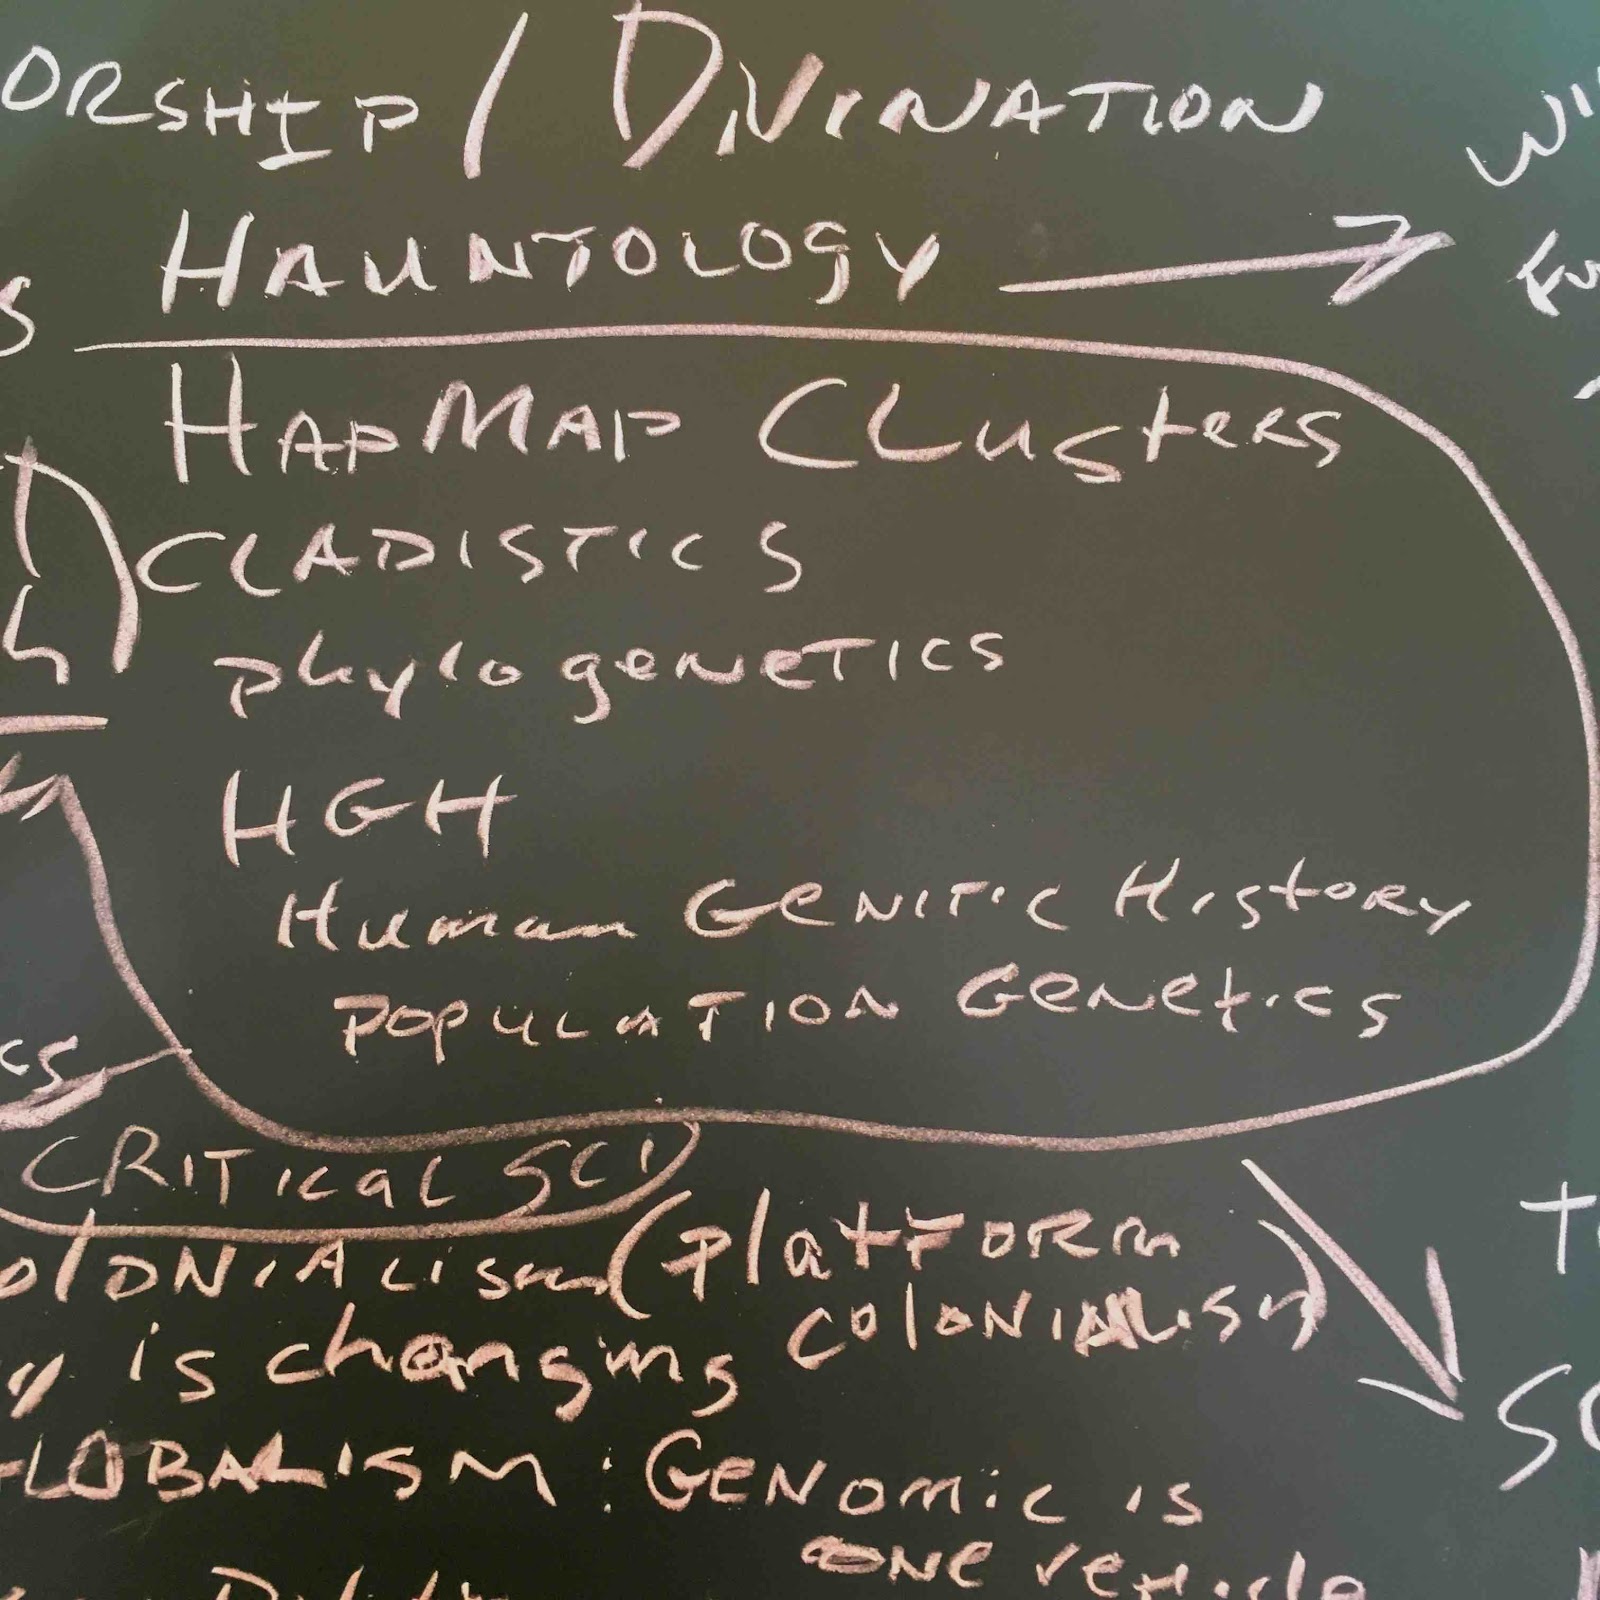 ORSHIP / DIVINATION
HAUNTOLOGY
HAPMAP CLUSTERS
CLADISTICS
phylogenetics
HGH
Human GENITIC HISTORY
POPULATION GENETICS
CRITICAL SCI
OLONIALISM (PLATFORM
COLONIALISM)
is changing
LOBALISM : GENOMIC is
ONE vehicle